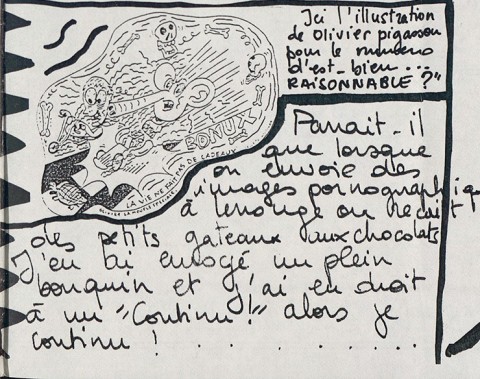 Ici l'illustration
de Olivier pigasson
pour le numéro
d'est-bien...
RAISONNABLE ?"
BONUX
LA VIE NE FAIT PAS DE CADEAUX
Parait-il
que lorsque
on envoie des
images pornographiqu
à on reçoit
des petits gateaux aux chocolats
J'en ai envoyé un plein
bouquin et j'ai eu droit
à un "Continu!" alors je
continu ! . . . . . . . .